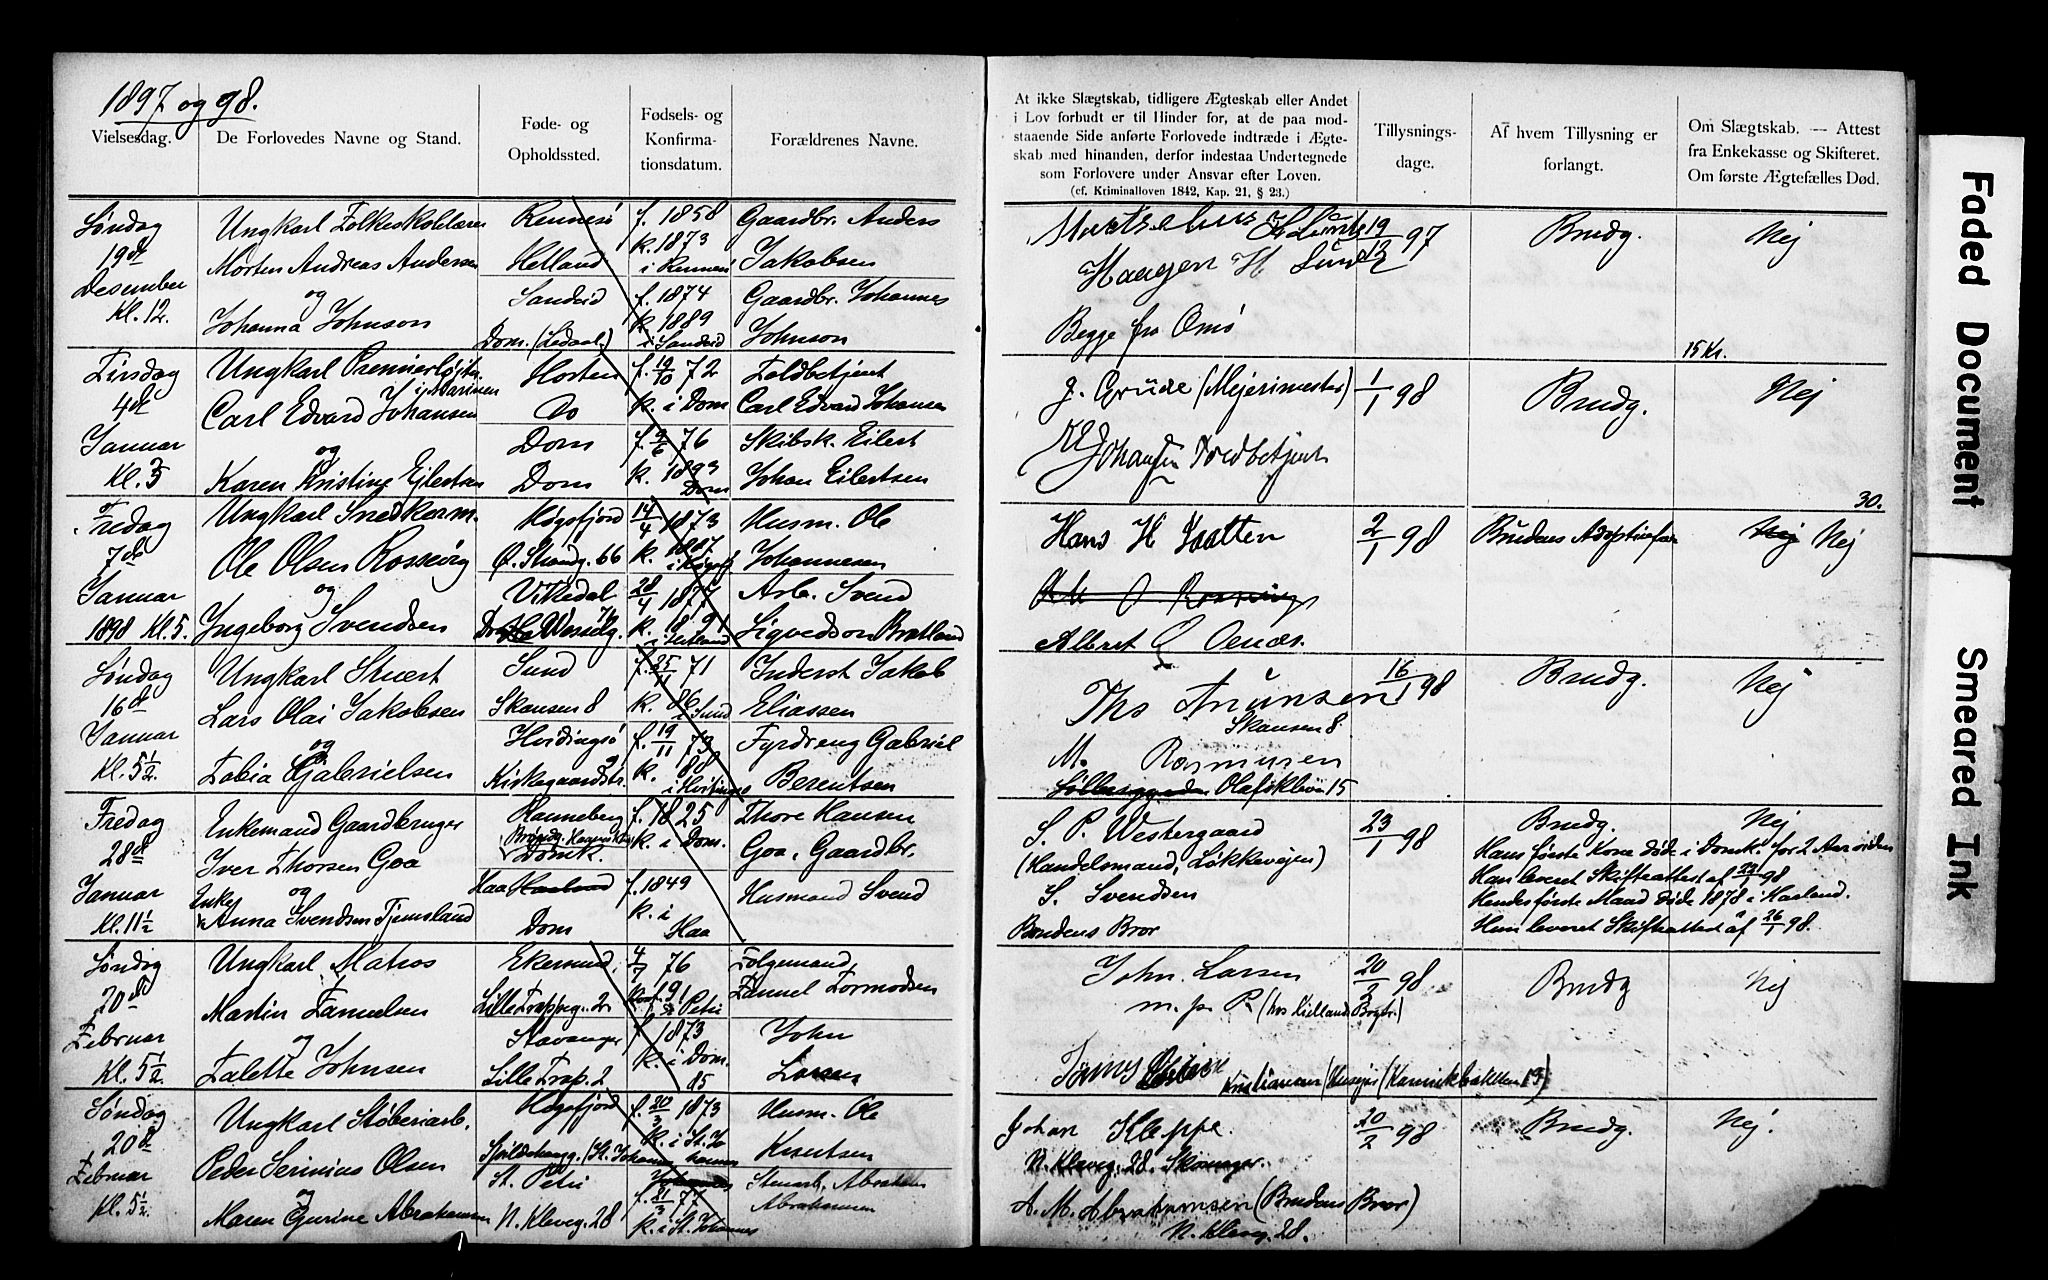 1897 og 98.
Vielsesdag.
De Forlovedes Navne og Stand.
Føde- og
Opholdssted.
Fødsels- og
Konfirma-
tionsdatum.
Forældrenes Navne.
At ikke Slægtskab, tidligere Ægteskab eller Andet
i Lov forbudt er til Hinder for, at de paa mod-
staaende Side anførte Forlovede indtræde i Ægte-
skab med hinanden, derfor indestaa Undertegnede
som Forlovere under Ansvar efter Loven.
(cf. Kriminalloven 1842, Kap. 21, § 23.)
Tillysnings-
dage.
Af hvem Tillysning er
forlangt.
Om Slægtskab. — Attest
fra Enkekasse og Skifteret.
Om første Ægtefælles Død.
Søndag
19de
Desember
Kl. 12.
Ungkarl Folkeskolelærer
Morten Andreas Andersen
og
Johanna Johnson
Rennesø
Helland
Sandeid
Dom. (Ledaal)
f. 1858
k. 1873
i Rennesø
f. 1874
k. 1889
i Sandeid
Gaardbr. Anders
Jakobsen
Gaardbr. Johannes
Johnson
Haagen H Lund
Begge fra Omø
19/12 97
Brudg.
Nej
15 Kr.
Tirsdag
4de
Januar
Kl. 5
Ungkarl Premierløjtn.
i Marinen
Carl Edvard Johansen
og
Karen Kristine Ejlertsen
Horten
Do
Dom
Dom
f. 19/10 72
k. i Dom
f. 2/6 76
k. 1893
Dom
Toldbetjent
Carl Edvard Johansen
Skibsk. Eilert
Johan Eilertsen
J. Grude (Mejerimester)
Johansen Toldbetjent
1/1 98
Brudg.
Nej
30.
Fredag
7de
Januar
1898 Kl. 5.
Ungkarl Snedkerm.
Ole Olsen Rossavig
og
Ingeborg Svendsen
Høgsfjord
Ø. Strandg. 66
Vikedal
f. 14/4 1873
k. 1887
i Høgsfj.
28/4 1877
Husm. Ole
Johannesen
Arb. Svend
Sigvedson Bratland
Hans H Taatten
Albret
2/1 98
Brudens Adoptivfar
Nej Nej
Søndag
16de
Januar
Kl. 5 1/2.
Ungkarl Stuert
Lars Olai Jakobsen
og
Tobia Gabrielsen
Sund
Skansen 8
Hvidingsø
Kirkegaardstr.
f. 25/11 71
k. 86
i Sund
f. 19/11 73
k. 88
i Hvitingsø
Inderst Jakob
Eliassen
Fyrdreng Gabriel
Berentsen
Ths
Skansen 8
M. Rasmusen
Olafskleven 15
16/1 98
Brudg.
Nej
Fredag
28de
Januar
Kl. 11 1/2
Enkemand Gaardbruger
Iver Thorsen Goa
og
Enke
Anna Svendsen Tjemsland
Randeberg
Domk.
Haa
Dom
f. 1825
k. i Dom.
f. 1849
k. i
Haa
Thore Hansen
Goa, Gaardbr.
Husmand Svend
S. P. Westergaard
(Handelsmand, Løkkevejen)
S. Svendsen
Brudens Bror
23/1 98
Brudg.
Nej
Hans første Kone døde i Domk. for 2 Aar siden
Han leveret Skifteattest af 22/1 98
Hendes første Mand døde 1878 i Harland.
Hun leveret Skifteattest af 26/1 98.
Søndag
20de
Februar
Kl. 5 1/2.
Ungkarl Matros
Martin Tanuelsen
og
Talette Johnsen
Ekersund,
Lille Trappeg. 2
Stavanger
Lille Trap. 2
4/7 76
Petri
f 1873
k. i Dom.
Følgemand,
Tanuel Tormodsen
John
Larsen
John. Larsen
m. p. P. (hos Kiellands Brygr.)
20/2 98
Brudg
Nej
Søndag
20de
Februar
Kl. 5 1/2.
Ungkarl Støberiarb.
Peder Serinius Olsen
og
Maren Gurine Abrahamsen
Høgsfjord
St. Petri
N. Kleveg. 28
f. 20/3 1873
k. i St. Jo
hannes
f. 21/3 77
k. i St. Johannes
Husm. Ole
Knutsen
Abraham
Abrahamsen
Johan Kleppe.
N. Kleveg. 28.
A. M. Abrahamsen (Brudens Bror)
N. Kleveg. 28.
20/2 98
Brudg.
Nej.
Faded Document
Smeared Ink